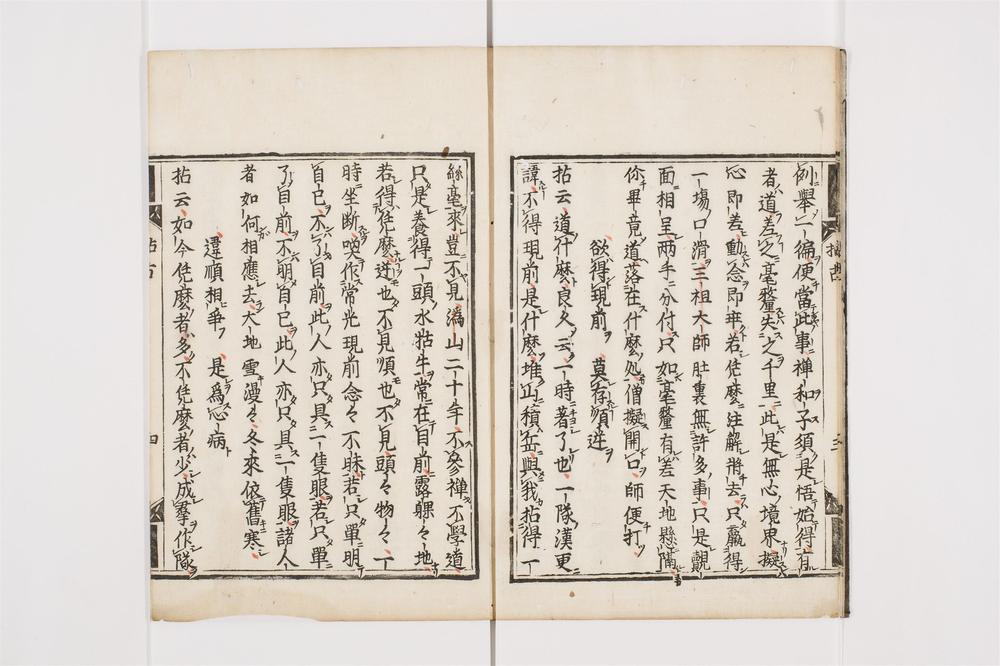 例擧一徧便當此事禪和子須是悟始得有
者道差之毫釐失之千里此是無心境界擬
心即差動念即乖若恁麽注解將去只贏得
一塲口滑三祖大師肚裏無許多事只是覿
面相呈兩手分付只如毫釐有差天地懸隔
你畢竟道落在什麽処僧擬開口師便打
欲得現前　莫存順逆
拈云道什麽良久云一時著了也一隊漢更
諱不得現前是什麽堆山積岳與我拈得一
絲毫來豈不見潙山二十年不參禪不學道
只是養得一頭水牯牛常在目前露躶々地
若得恁麽逆也不見順也不見頭々物々一
時坐断喚作常光現前念々不昧若只單明
自己不了目前此人亦只具一隻眼若只單
了目前不明自己此人亦只具一隻眼諸人
者如何相應去大地雪漫々冬來依舊寒
違順相爭　是爲心病
拈云如今恁麽者多不恁麽者少成羣作隊